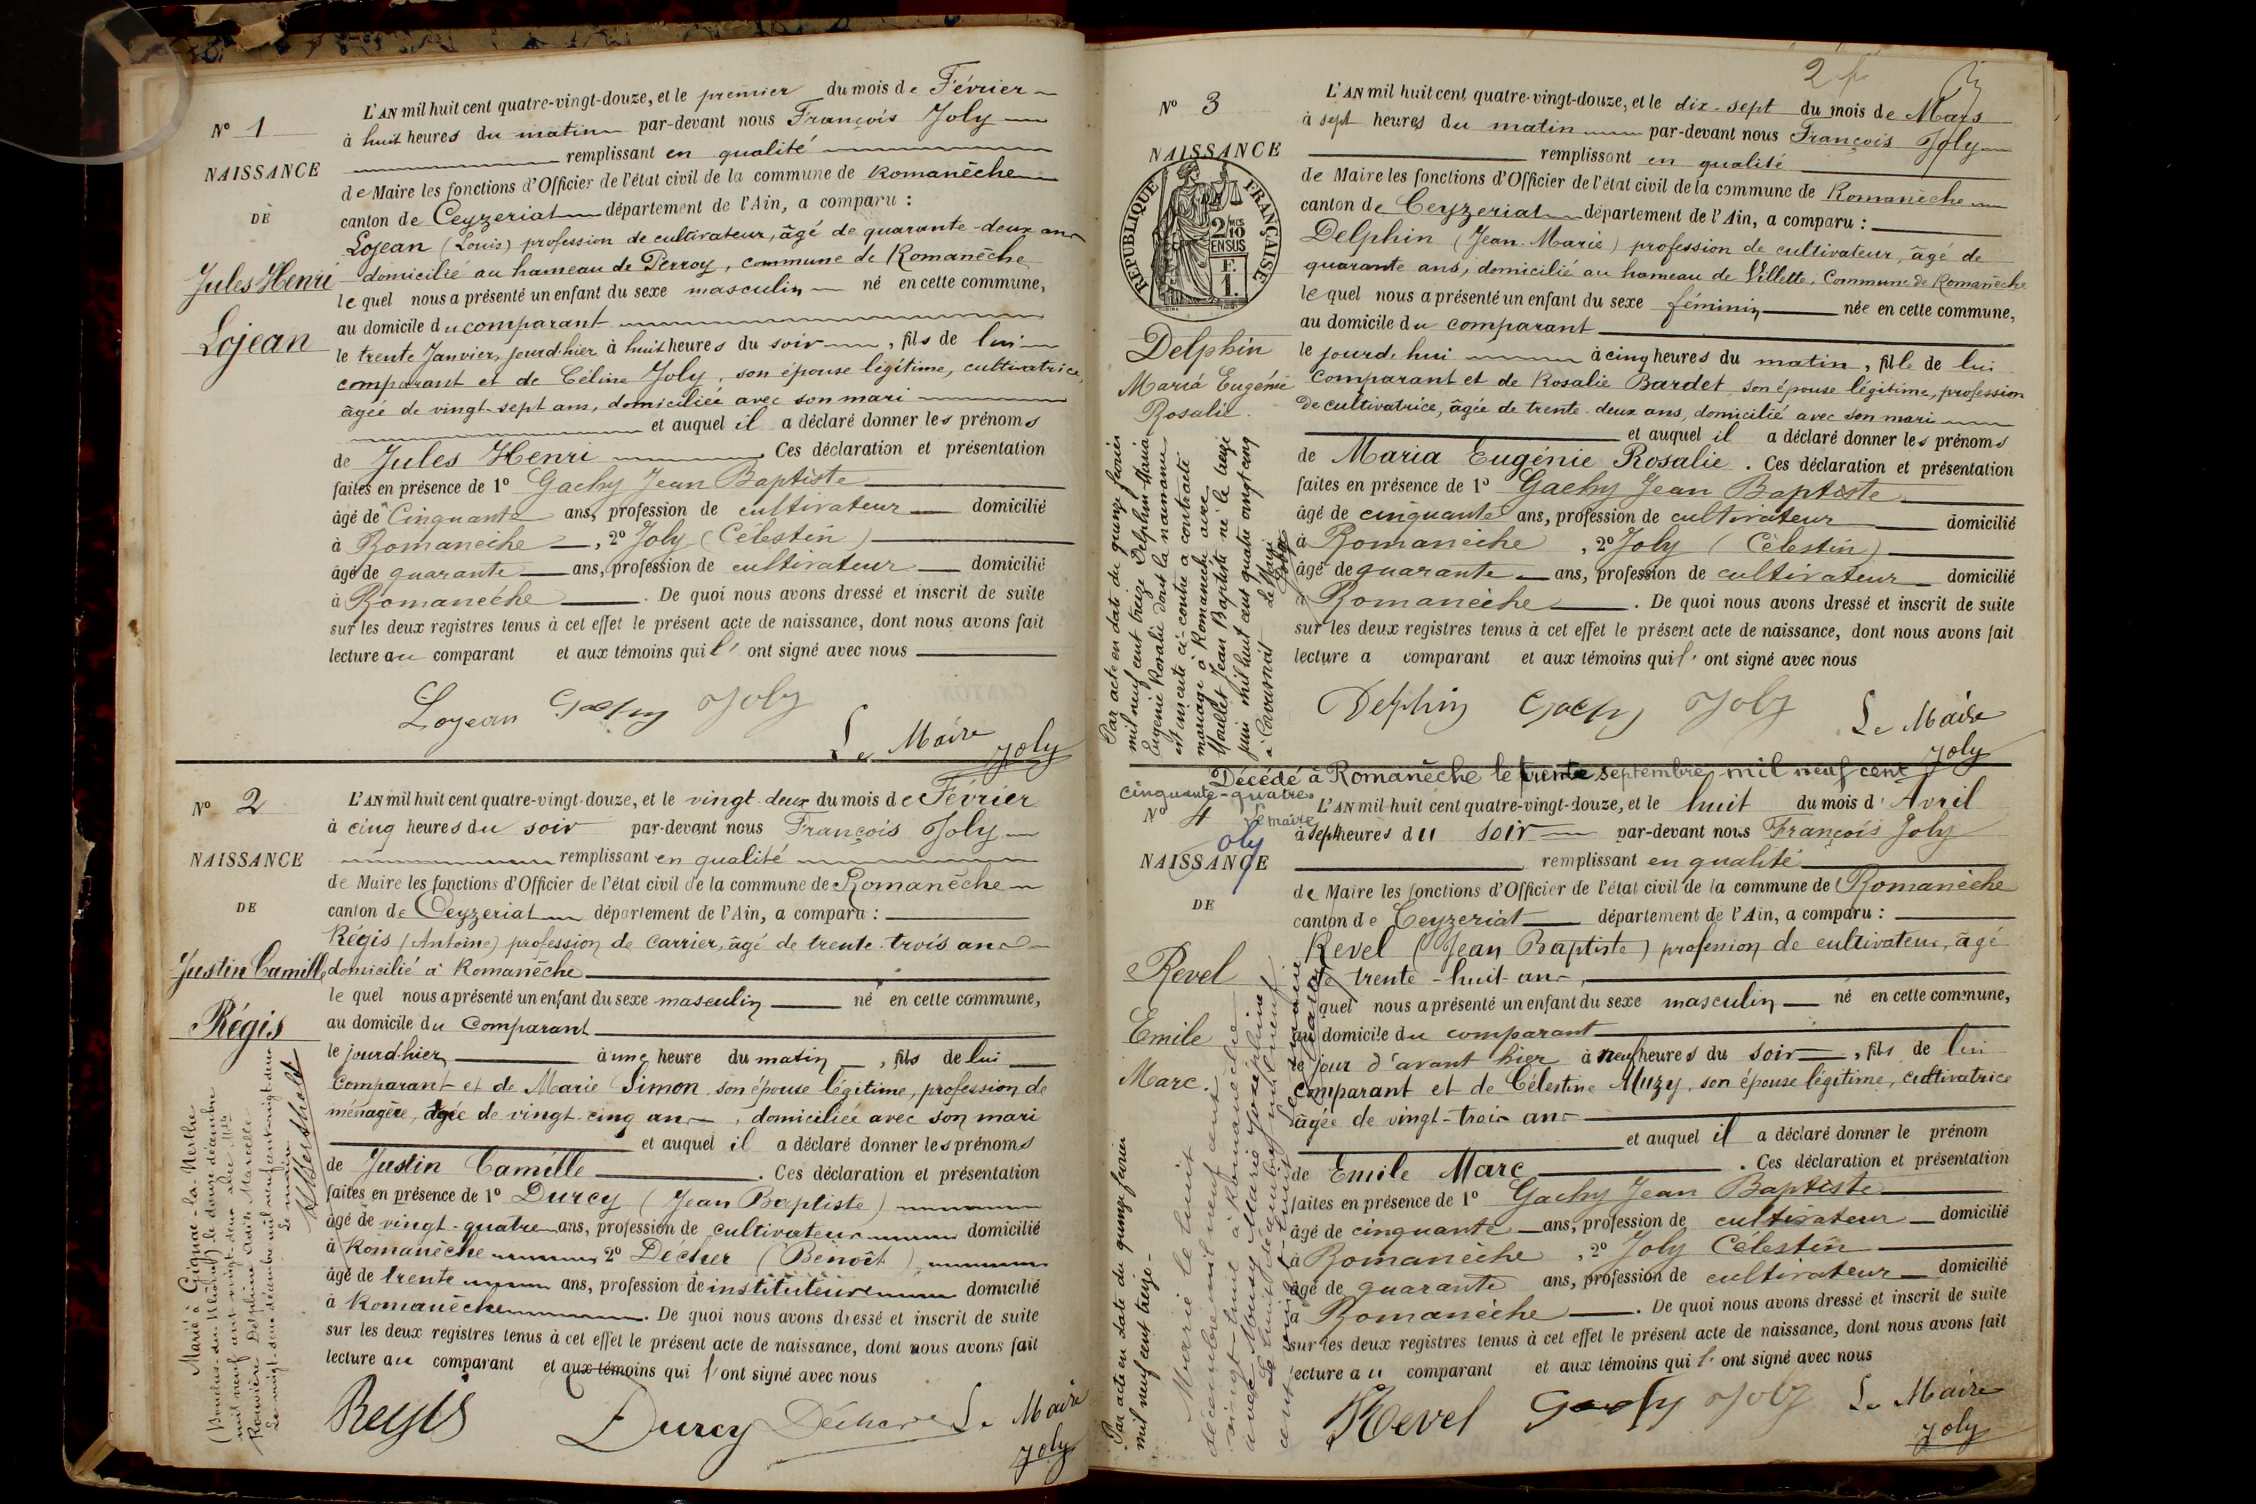 Nº 1
NAISSANCE
DE
Jules Henri
Lojean
L'AN mil huit cent quatre-vingt-douze, et le premier du mois de Février
à huit heures du matin par-devant nous François Joly
remplissant en qualité
de Maire les fonctions d'Officier de l'état civil de la commune de Romanèche
canton de Ceyzeriat département de l'Ain, a comparu :
Lojean (Louis) profession de cultivateur, âgé de quarante-deux ans
domicilié au hameau de Perroy, commune de Romanèche
lequel nous a présenté un enfant du sexe masculin né en cette commune,
au domicile du comparant
le trente Janvier, jourd-hier à huit heures du soir, fils de lui
comparant et de Céline Joly, son épouse légitime, cultivatrice,
âgée de vingt-sept ans, domiciliée avec son mari
et auquel il a déclaré donner les prénoms
de Jules Henri Ces déclaration et présentation
faites en présence de 1º Gachy Jean Baptiste
âgé de Cinquante ans, profession de cultivateur domicilié
à Romanèche, 2º Joly (Célestin)
âgé de quarante ans, profession de cultivateur domicilié
à Romanèche. De quoi nous avons dressé et inscrit de suite
sur les deux registres tenus à cet effet le présent acte de naissance, dont nous avons fait
lecture au comparant et aux témoins qui l' ont signé avec nous
Lojean Gachy Joly
Le Maire
Joly
Nº 2
NAISSANCE
DE
Justin Camille
Régis
L'AN mil huit cent quatre-vingt-douze, et le vingt-deux du mois de Février
à cinq heures du soir par-devant nous François Joly
remplissant en qualité
de Maire les fonctions d'Officier de l'état civil de la commune de Romanèche
canton de Ceyzeriat département de l'Ain, a comparu :
Régis (Antoine) profession de carrier, âgé de trente-trois ans
domicilié à Romanèche
lequel nous a présenté un enfant du sexe masculin né en cette commune,
au domicile du comparant
le jourd-hier à une heure du matin, fils de lui
comparant et de Marie Simon son épouse légitime, profession de
ménagère, âgée de vingt-cinq ans, domiciliée avec son mari
et auquel il a déclaré donner les prénoms
de Justin Camille. Ces déclaration et présentation
faites en présence de 1º Durcy (Jean Baptiste)
âgé de vingt-quatre ans, profession de cultivateur domicilié
à Romanèche 2º Decher (Benoît)
âgé de trente ans, profession de instituteur domicilié
à Romanèche. De quoi nous avons dressé et inscrit de suite
sur les deux registres tenus à cet effet le présent acte de naissance, dont nous avons fait
lecture au comparant et aux témoins qui l' ont signé avec nous
Regis Durcy Le Maire
Joly
Marié à Gignac-la-Nerthe
(Bouches-du-Rhône) le douze décembre
mil neuf cent vingt-deux avec Mlle
Rouvière Delphine Marcelle
Le vingt-deux décembre mil neuf cent vingt-deux
Le maire
2
Nº 3
NAISSANCE
DE
RÉPUBLIQUE FRANÇAISE
2/10
EN SUS
F.
1.
Delphin
Maria Eugénie
Rosalie.
L'AN mil huit cent quatre-vingt-douze, et le dix-sept du mois de Mars
à sept heures du matin par-devant nous François Joly
remplissant en qualité
de Maire les fonctions d'Officier de l'état civil de la commune de Romanèche
canton de Ceyzeriat département de l'Ain, a comparu :
Delphin (Jean-Marie) profession de cultivateur, âgé de
quarante ans, domicilié au hameau de Villette, Commune de Romanèche
lequel nous a présenté un enfant du sexe féminin née en cette commune,
au domicile du comparant
le jourd'hui à cinq heures du matin, fille de lui
comparant et de Rosalie Bardet son épouse légitime, profession
de cultivatrice, âgée de trente-deux ans, domicilié avec son mari
et auquel il a déclaré donner les prénoms
de Maria Eugénie Rosalie. Ces déclaration et présentation
faites en présence de 1º Gachy Jean Baptiste
âgé de cinquante ans, profession de cultivateur domicilié
à Romanèche, 2º Joly (Célestin)
âgé de quarante ans, profession de cultivateur domicilié
à Romanèche. De quoi nous avons dressé et inscrit de suite
sur les deux registres tenus à cet effet le présent acte de naissance, dont nous avons fait
lecture a comparant et aux témoins qui l' ont signé avec nous
Delphin Gachy Joly Le Maire
Joly
Par acte en date du quinze février
mil neuf cent treize Delphin Maria
Eugénie Rosalie dont la naissance
est inscrite ci-contre a contracté
mariage à Romanèche avec
Maillet Jean Baptiste né le treize
juin mil huit cent quatre vingt cinq
à
Le Maire
Joly
Décédé à Romanèche le trente septembre mil neuf cent
cinquante-quatre.
le maire
Joly
Nº 4
NAISSANCE
DE
Revel
Emile
Marc.
L'AN mil huit cent quatre-vingt-douze, et le huit du mois d'Avril
à sept heures du soir par-devant nous François Joly
remplissant en qualité
de Maire les fonctions d'Officier de l'état civil de la commune de Romanèche
canton de Ceyzeriat département de l'Ain, a comparu :
Revel (Jean Baptiste) profession de cultivateur, âgé
de trente-huit ans,
lequel nous a présenté un enfant du sexe masculin né en cette commune,
au domicile du comparant
le jour d'avant hier à neuf heures du soir, fils de lui
comparant et de Célestine Muzy, son épouse légitime, cultivatrice
âgée de vingt-trois ans
et auquel il a déclaré donner le prénom
de Emile Marc. Ces déclaration et présentation
faites en présence de 1º Gachy Jean Baptiste
âgé de cinquante ans, profession de cultivateur domicilié
à Romanèche, 2º Joly Célestin
âgé de quarante ans, profession de cultivateur domicilié
à Romanèche. De quoi nous avons dressé et inscrit de suite
sur les deux registres tenus à cet effet le présent acte de naissance, dont nous avons fait
lecture au comparant et aux témoins qui l' ont signé avec nous
Revel Gachy Joly Le Maire
Joly
Par acte en date du quinze février
mil neuf cent treize -
Marié le huit
décembre mil neuf cent
vingt-huit à Romanèche
avec Mousy Marie Joséphine
Le huit décembre mil neuf
cent vingt-huit